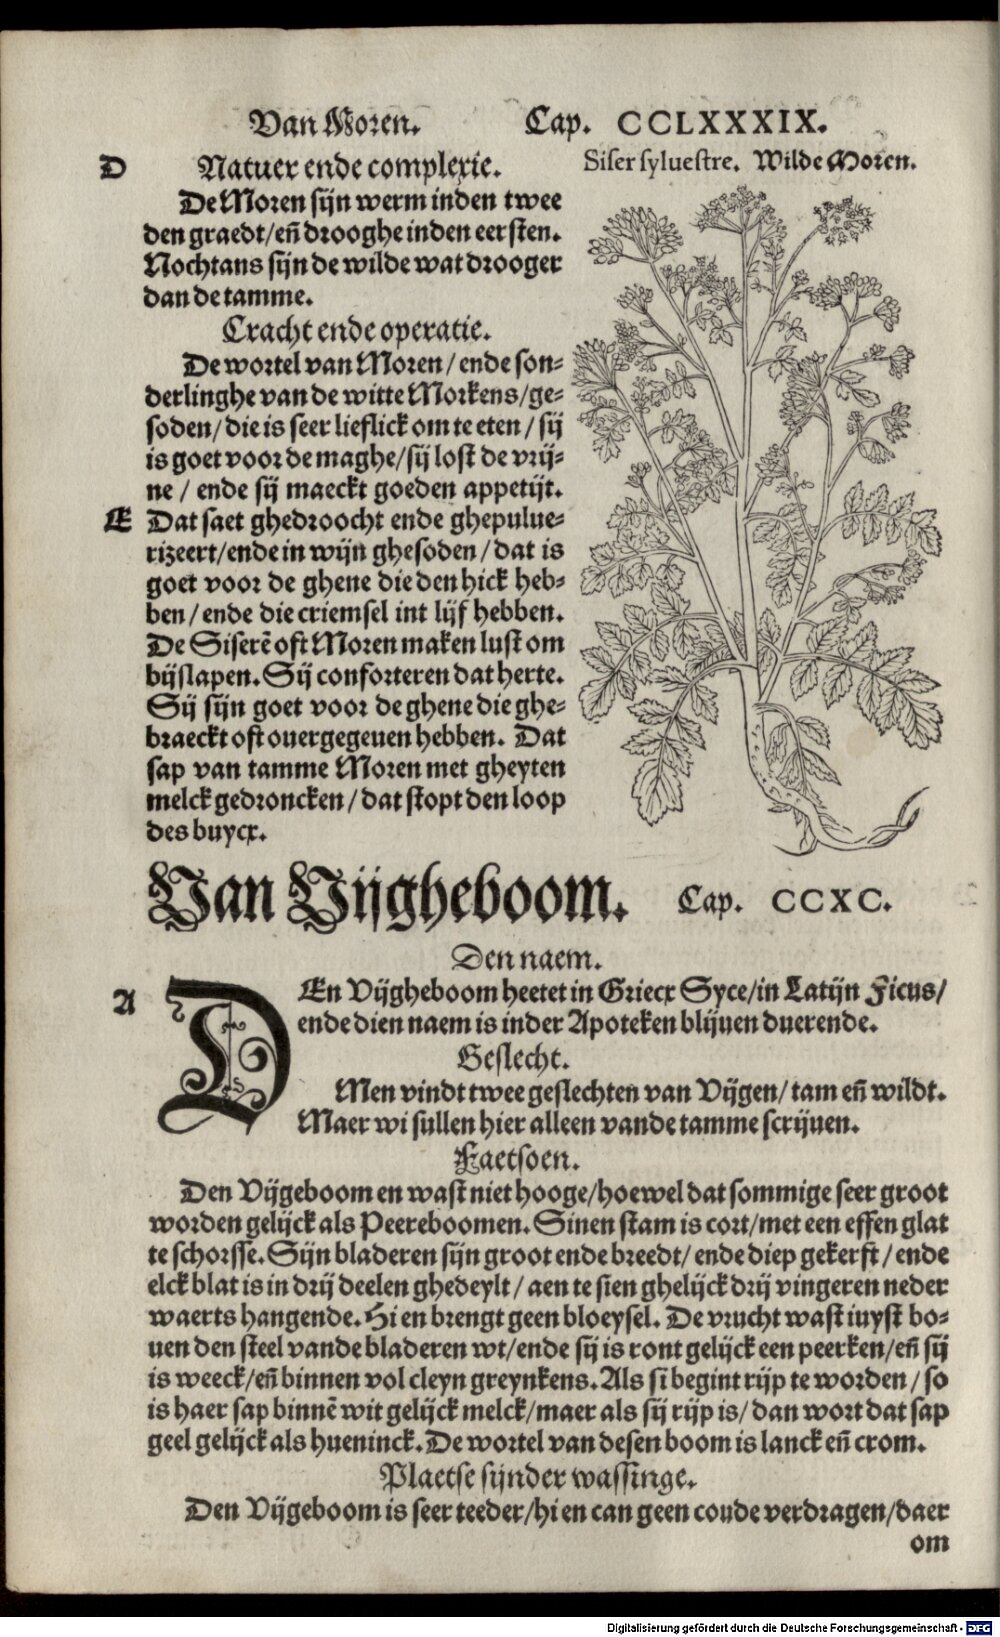 Van Moren. Cap. CCLXXXIX.
D Natuer ende complexie.
De Moren sijn werm inden twee
den graedt/eñ drooghe inden eersten.
Nochtans sijn de wilde wat drooger
dan de tamme.
Cracht ende operatie.
De wortel van Moren/ende son-
derlinghe van de witte Morkens/ge-
soden/die is seer lieflick om te eten/sij
is goet voor de maghe/sij lost de vrij-
ne/ende sij maeckt goeden appetijt.
E Dat saet ghedroocht ende ghepulue-
rizeert/ende in wijn ghesoden/dat is
goet voor de ghene die den hick heb-
ben/ende die criemsel int lijf hebben.
De Siserē oft Moren maken lust om
bijslapen. Sij conforteren dat herte.
Sij sijn goet voor de ghene die ghe-
braeckt oft ouergegeuen hebben. Dat
sap van tamme Moren met gheyten
melck gedroncken/dat stopt den loop
des buycx.
Siser syluestre. Wilde Moren.
Van Vijgheboom. Cap. CCXC.
Den naem.
A DEn Vijgheboom heetet in Griecx Syce/in Latijn Ficus/
ende dien naem is inder Apoteken blijuen duerende.
Geslecht.
Men vindt twee geslechten van Vijgen/tam eñ wildt.
Maer wi sullen hier alleen vande tamme scrijuen.
Faetsoen.
Den Vijgeboom en wast niet hooge/hoewel dat sommige seer groot
worden gelijck als Peereboomen. Sinen stam is cort/met een effen glat
te schorsse. Sijn bladeren sijn groot ende breedt/ende diep gekerft/ende
elck blat is in drij deelen ghedeylt/aen te sien ghelijck drij vingeren neder
waerts hangende. Hi en brengt geen bloeysel. De vrucht wast iuyst bo-
uen den steel vande bladeren wt/ende sij is ront gelijck een peerken/eñ sij
is weeck/eñ binnen vol cleyn greynkens. Als si begint rijp te worden/so
is haer sap binnē wit gelijck melck/maer als sij rijp is/dan wort dat sap
geel gelijck als hueninck. De wortel van desen boom is lanck eñ crom.
Plaetse sijnder wassinge.
Den Vijgeboom is seer teeder/hi en can geen coude verdragen/daer
om
Digitalisierung gefördert durch die Deutsche Forschungsgemeinschaft - DFG